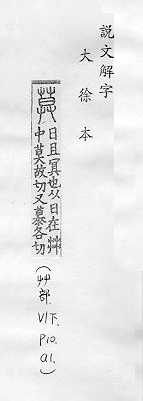 說文解字
大徐本
莫 日且冥也从日在茻
中莫故切又慕各切
(艸部.
VI下.
P10.
a1.)